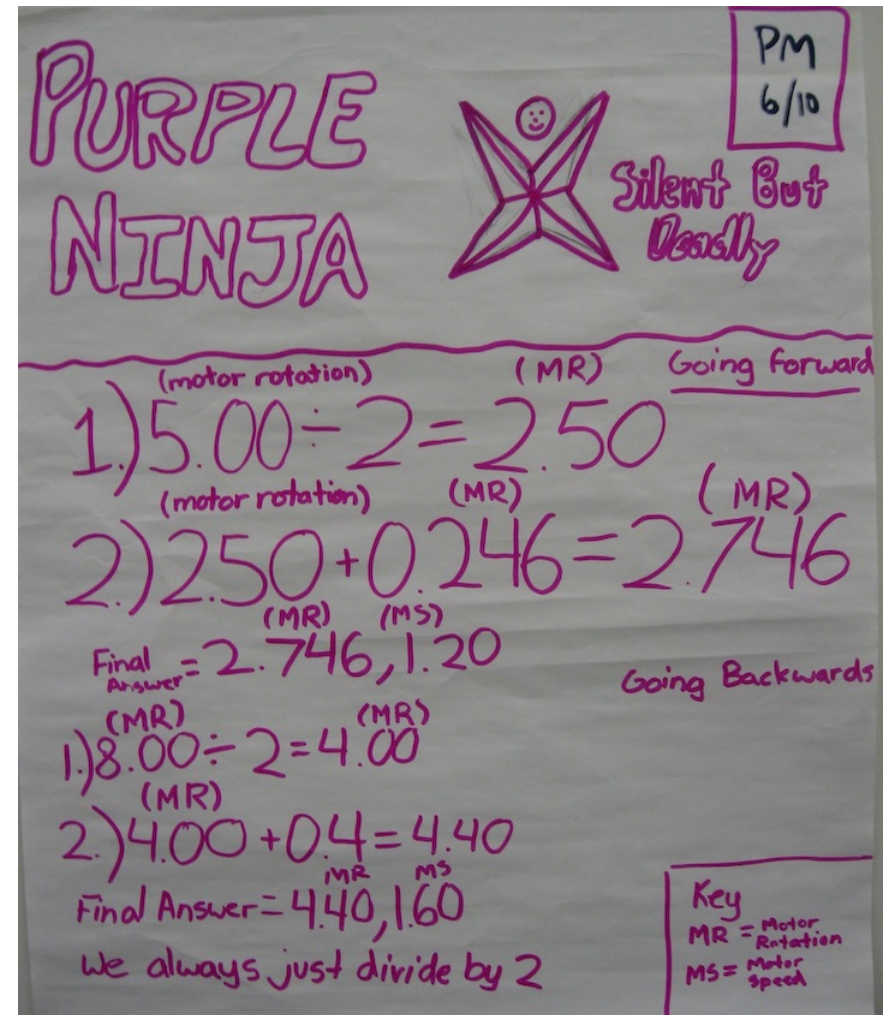 PURPLE
NINJA
Silent But
Deadly
PM
6/10
Going forward
(motor rotation) (MR)
1.) 5.00 ÷ 2 = 2.50
(motor rotation) (MR) (MR)
2.) 2.50 + 0.246 = 2.746
(MR) (MS)
Final Answer = 2.746, 1.20
Going Backwards
(MR) (MR)
1.) 8.00 ÷ 2 = 4.00
(MR)
2.) 4.00 + 0.4 = 4.40
MR MS
Final Answer = 4.40, 1.60
We always just divide by 2
Key
MR = Motor Rotation
MS = Motor Speed